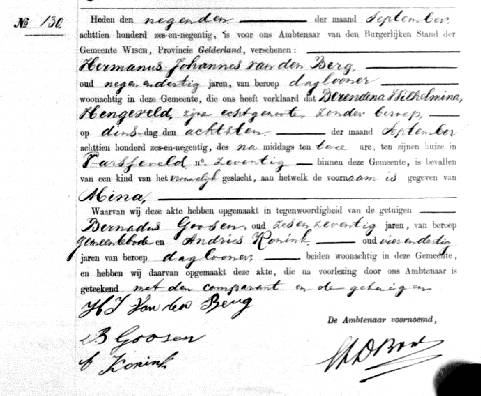 № 130.
Heden den negenden der maand September
achttien honderd zes-en-negentig, is voor ons Ambtenaar van den Burgerlijken Stand der
Gemeente Wisch, Provincie Gelderland, verschenen:
Hermanus Johannes van den Berg,
oud negenendertig jaren, van beroep daglooner
woonachtig in deze Gemeente, die ons heeft verklaard dat Berendina Wilhelmina
Hengeveld, zijne echtgenoote, zonder beroep,
op dinsdag den achtsten der maand September
achttien honderd zes-en-negentig, des na middags ten twee ure, ten zijnen huize in
Varsseveld no. zeventig binnen deze Gemeente, is bevallen
van een kind van het vrouwelijk geslacht, aan hetwelk de voornaam is gegeven van
Mina,
Waarvan wij deze akte hebben opgemaakt in tegenwoordigheid van de getuigen
Bernadus Goosen, oud zesenzeventig jaren, van beroep
gemeentebode en Andries Konink, oud vierendertig
jaren van beroep daglooner, beiden woonachtig in deze Gemeente,
en hebben wij daarvan opgemaakt deze akte, die na voorlezing door ons Ambtenaar is
geteekend met den comparant en de getuigen
H J van den Berg
B Goosen
Konink
De Ambtenaar voornoemd,